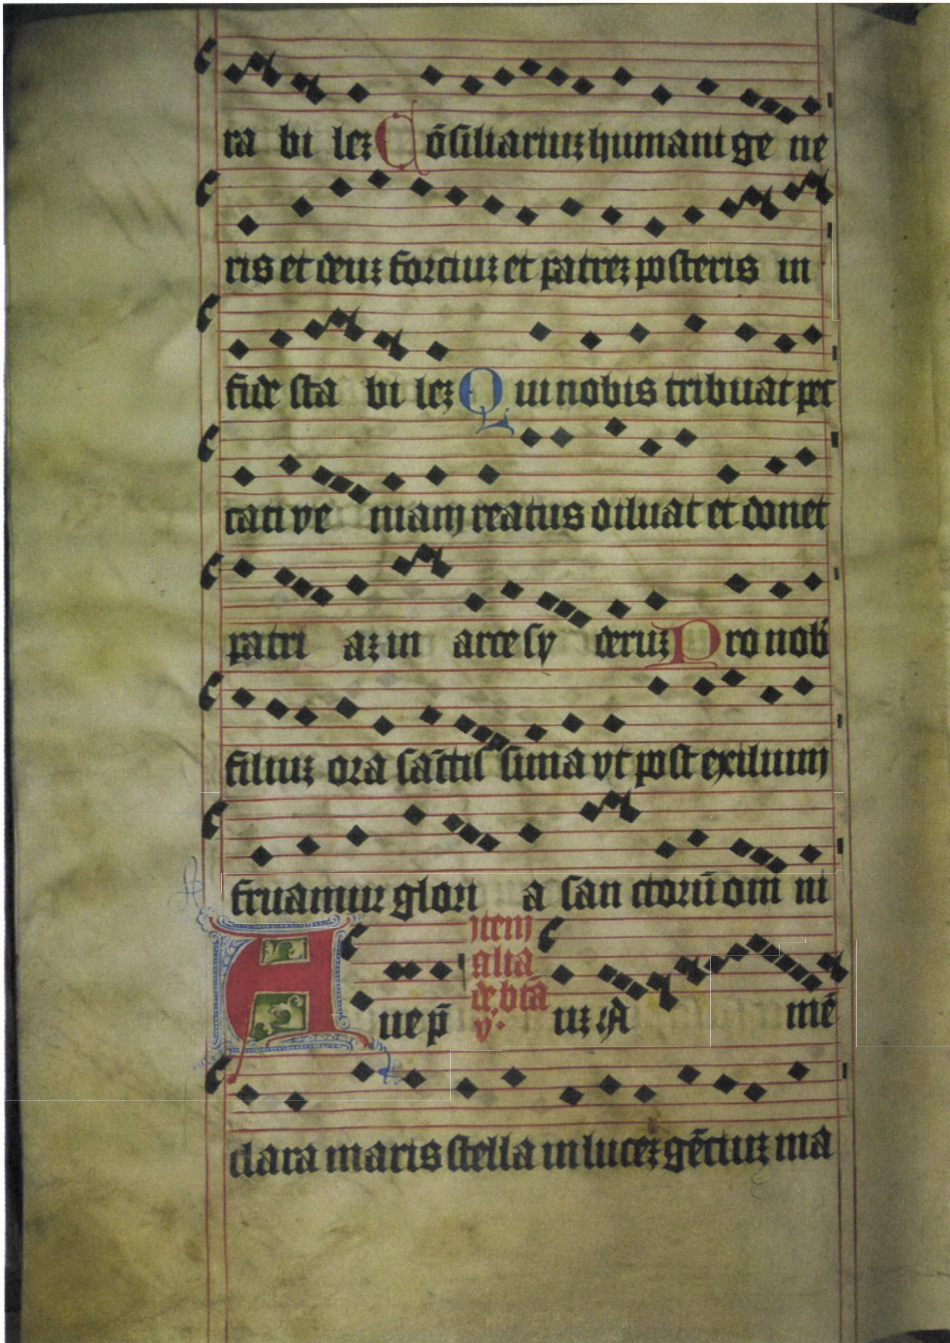 ra bi lez Cōsiliariuz humani ge ne
ris et deuz forciuz et patrez posteris in
fide sta bi lez Qui nobis tribuat pec
cati ve niam reatus diluat et donet
patri az in arce sy deruz Pro nob
filiuz ora sāctis sima vt post exilium
fruamur glori a san ctorū om ni
uz A mē
Item alia de bta v.
Aue p̄
clara maris stella in lucez gēciuz ma